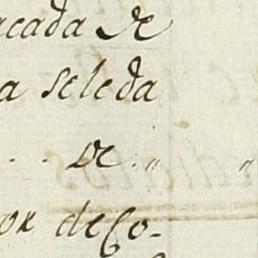 acada de
a seleda
. . de . „ „
or de Co-